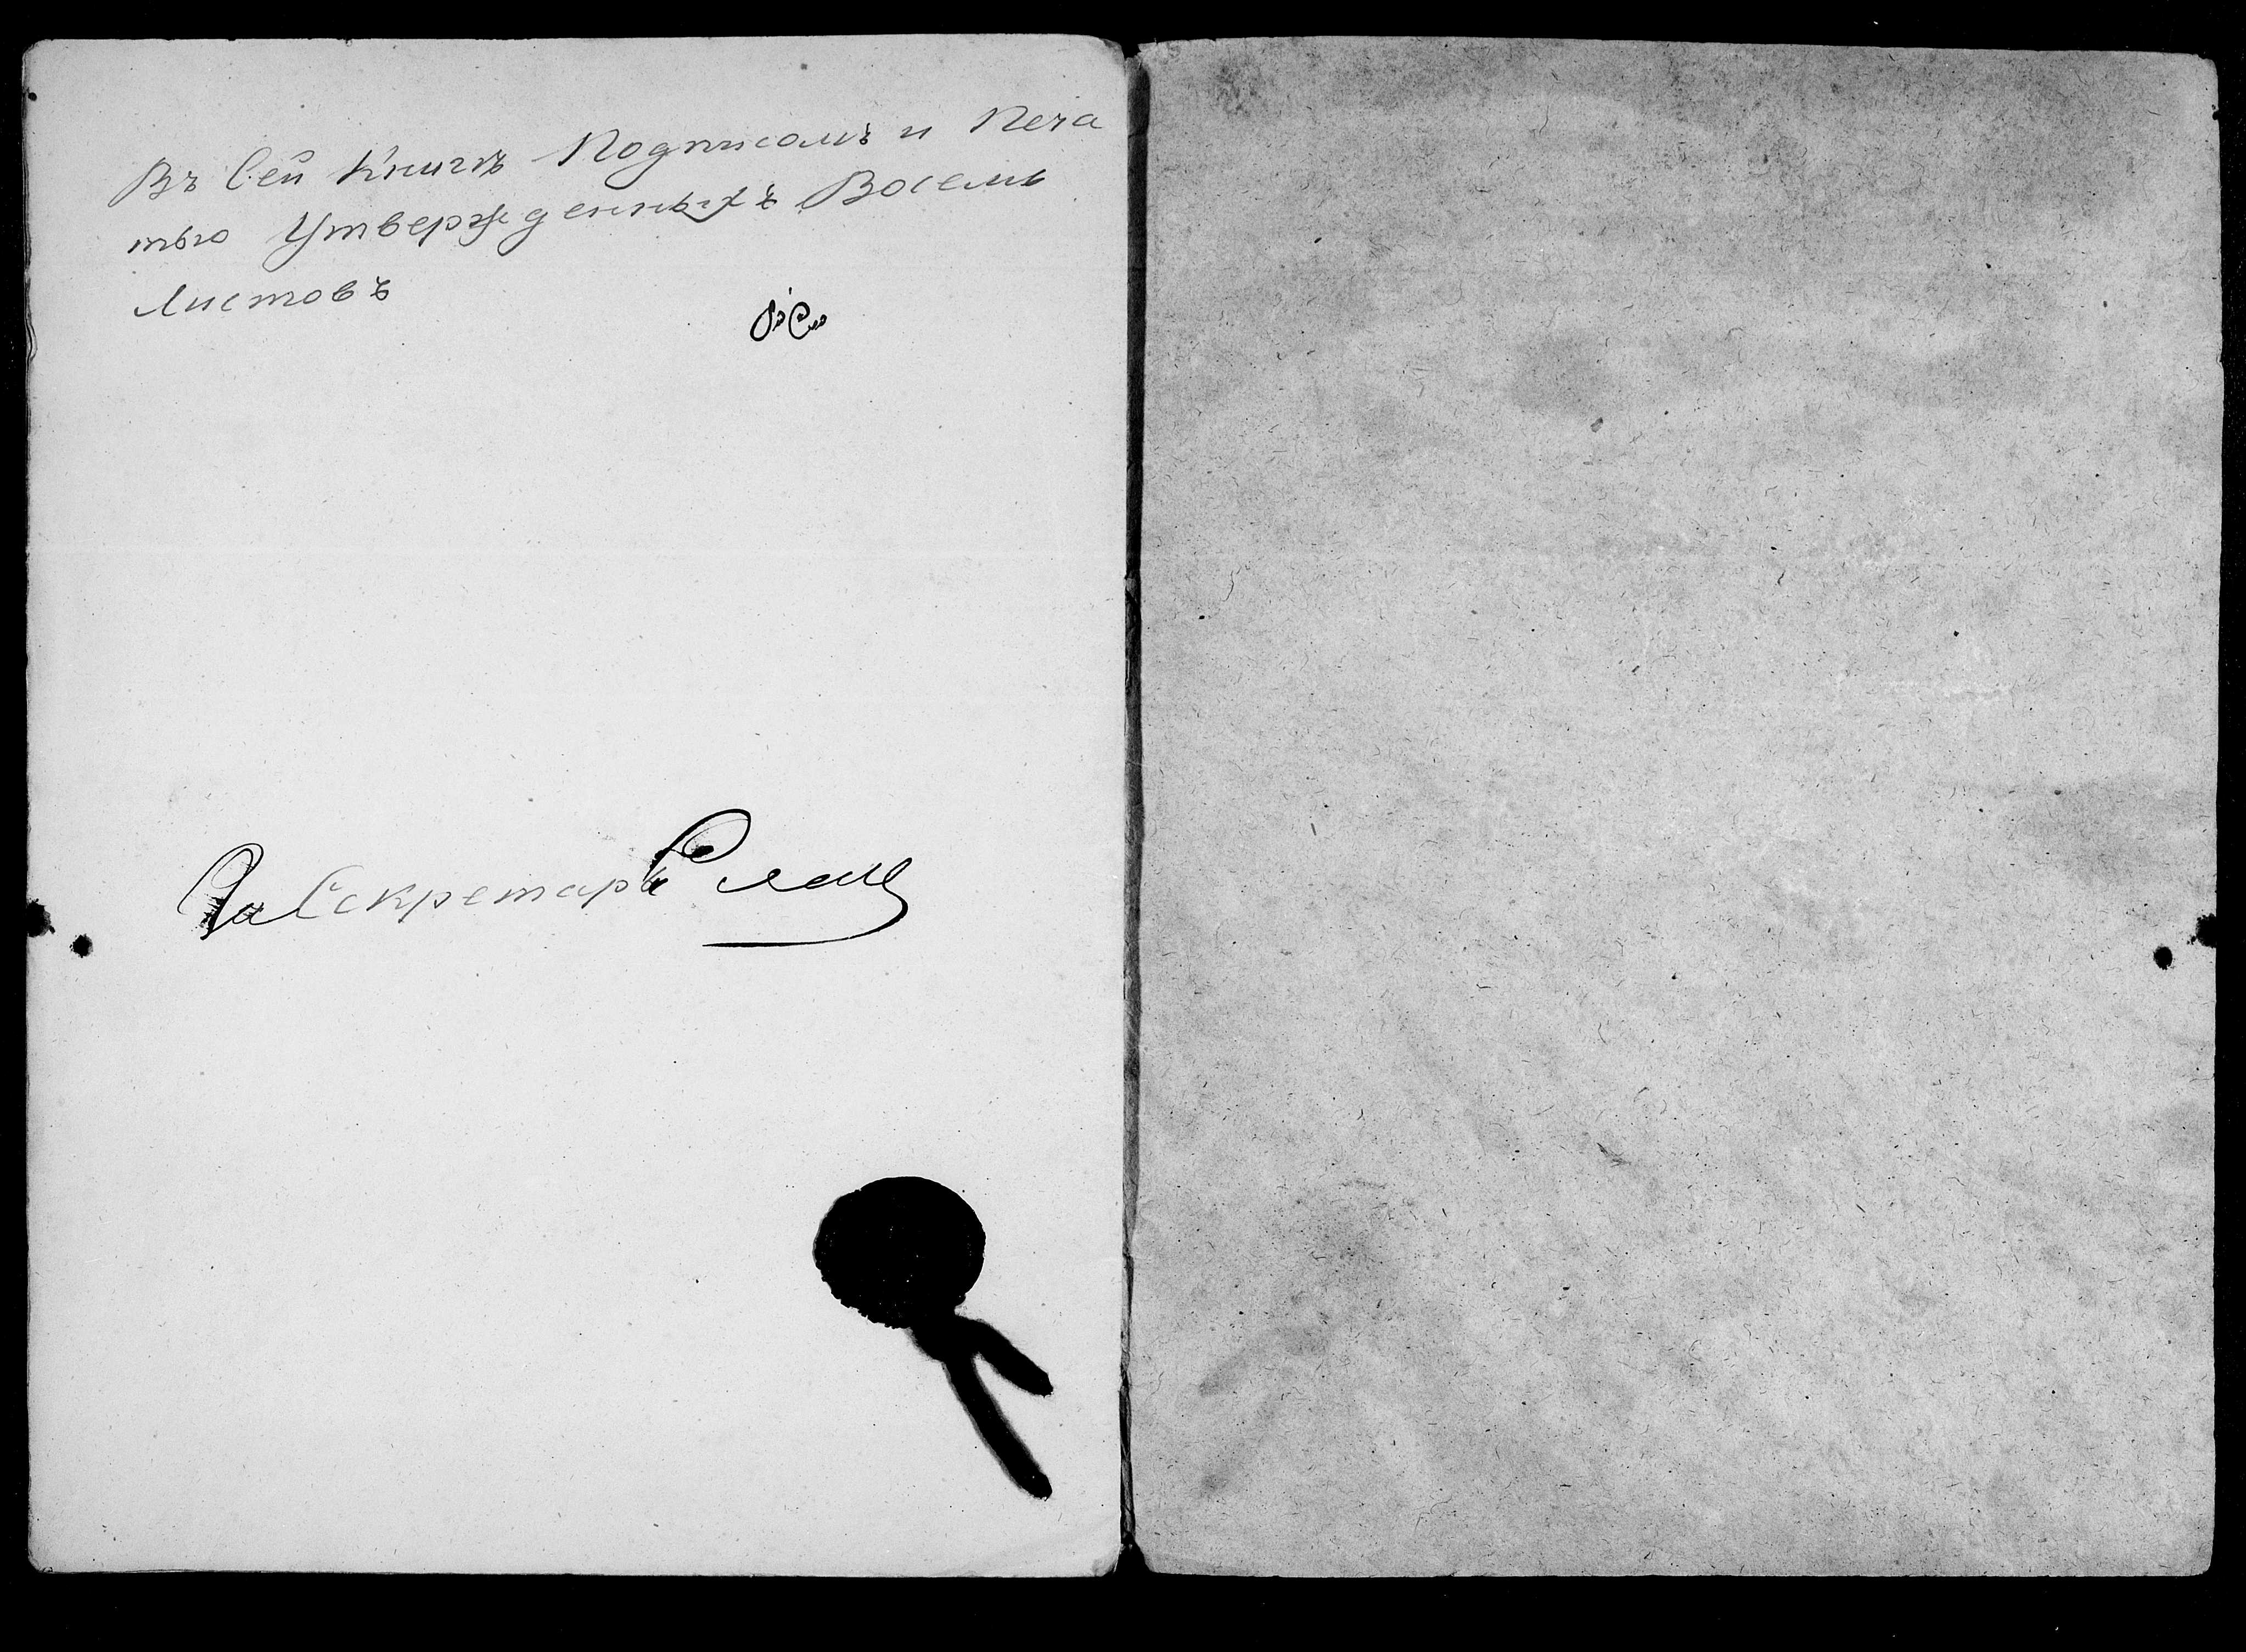 Въ Сей Книгѣ Подписомъ и Печа
тью Утвержденныхъ Восемь
Листовъ
За Секретаря